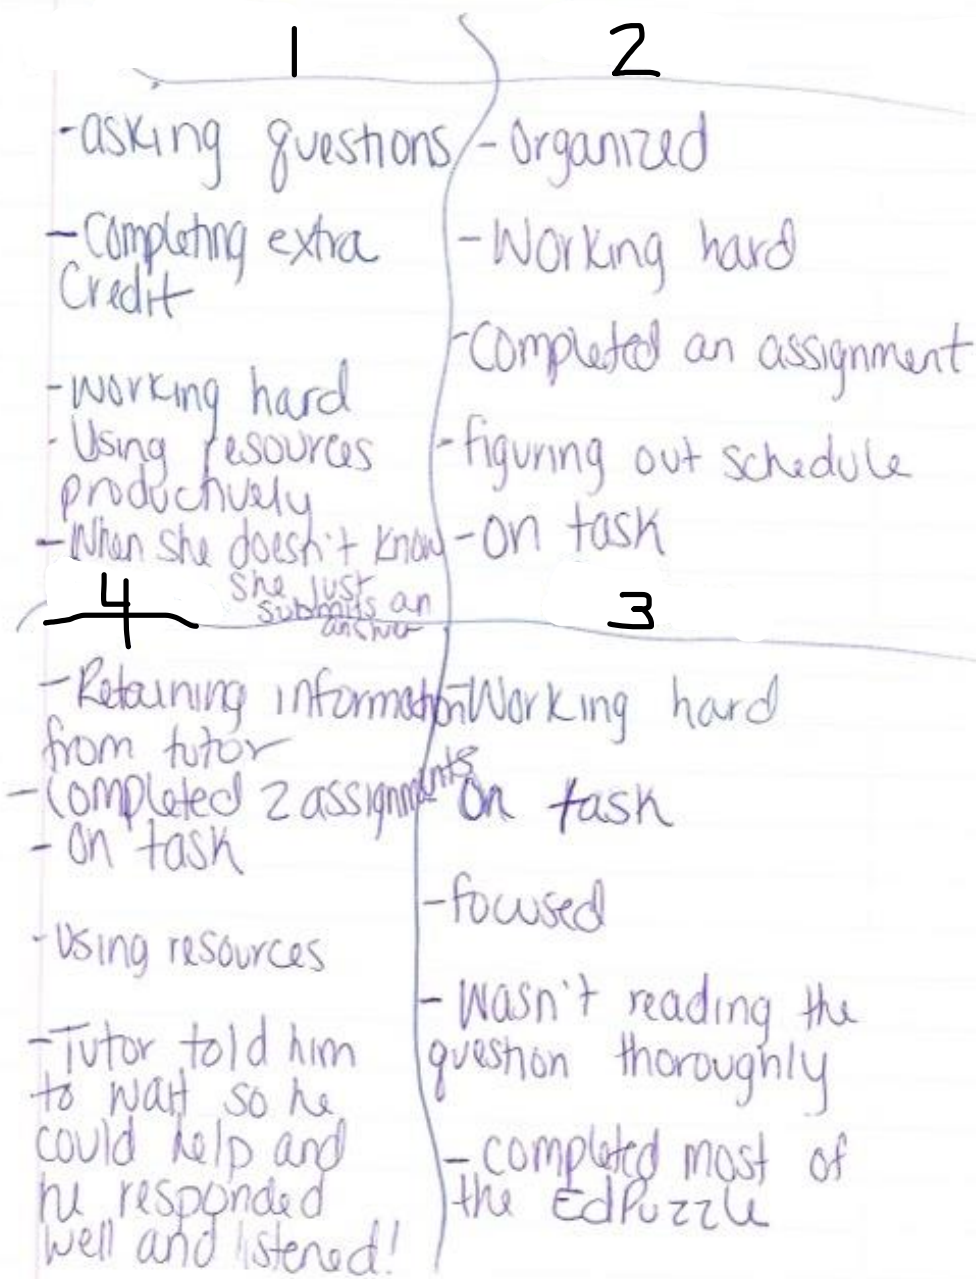 1
- asking questions
- Completing extra
Credit
- Working hard
- Using resources
productively
- When she doesn't know
she just
submits an
answer
2
- Organized
- Working hard
- Completed an assignment
- figuring out schedule
- on task
4
- Retaining information
from tutor
- Completed 2 assignments
- On task
- Using resources
- Tutor told him
to wait so he
could help and
he responded
well and listened!
3
- Working hard
On task
- focused
- Wasn't reading the
question thoroughly
- completed most of
the EdPuzzle